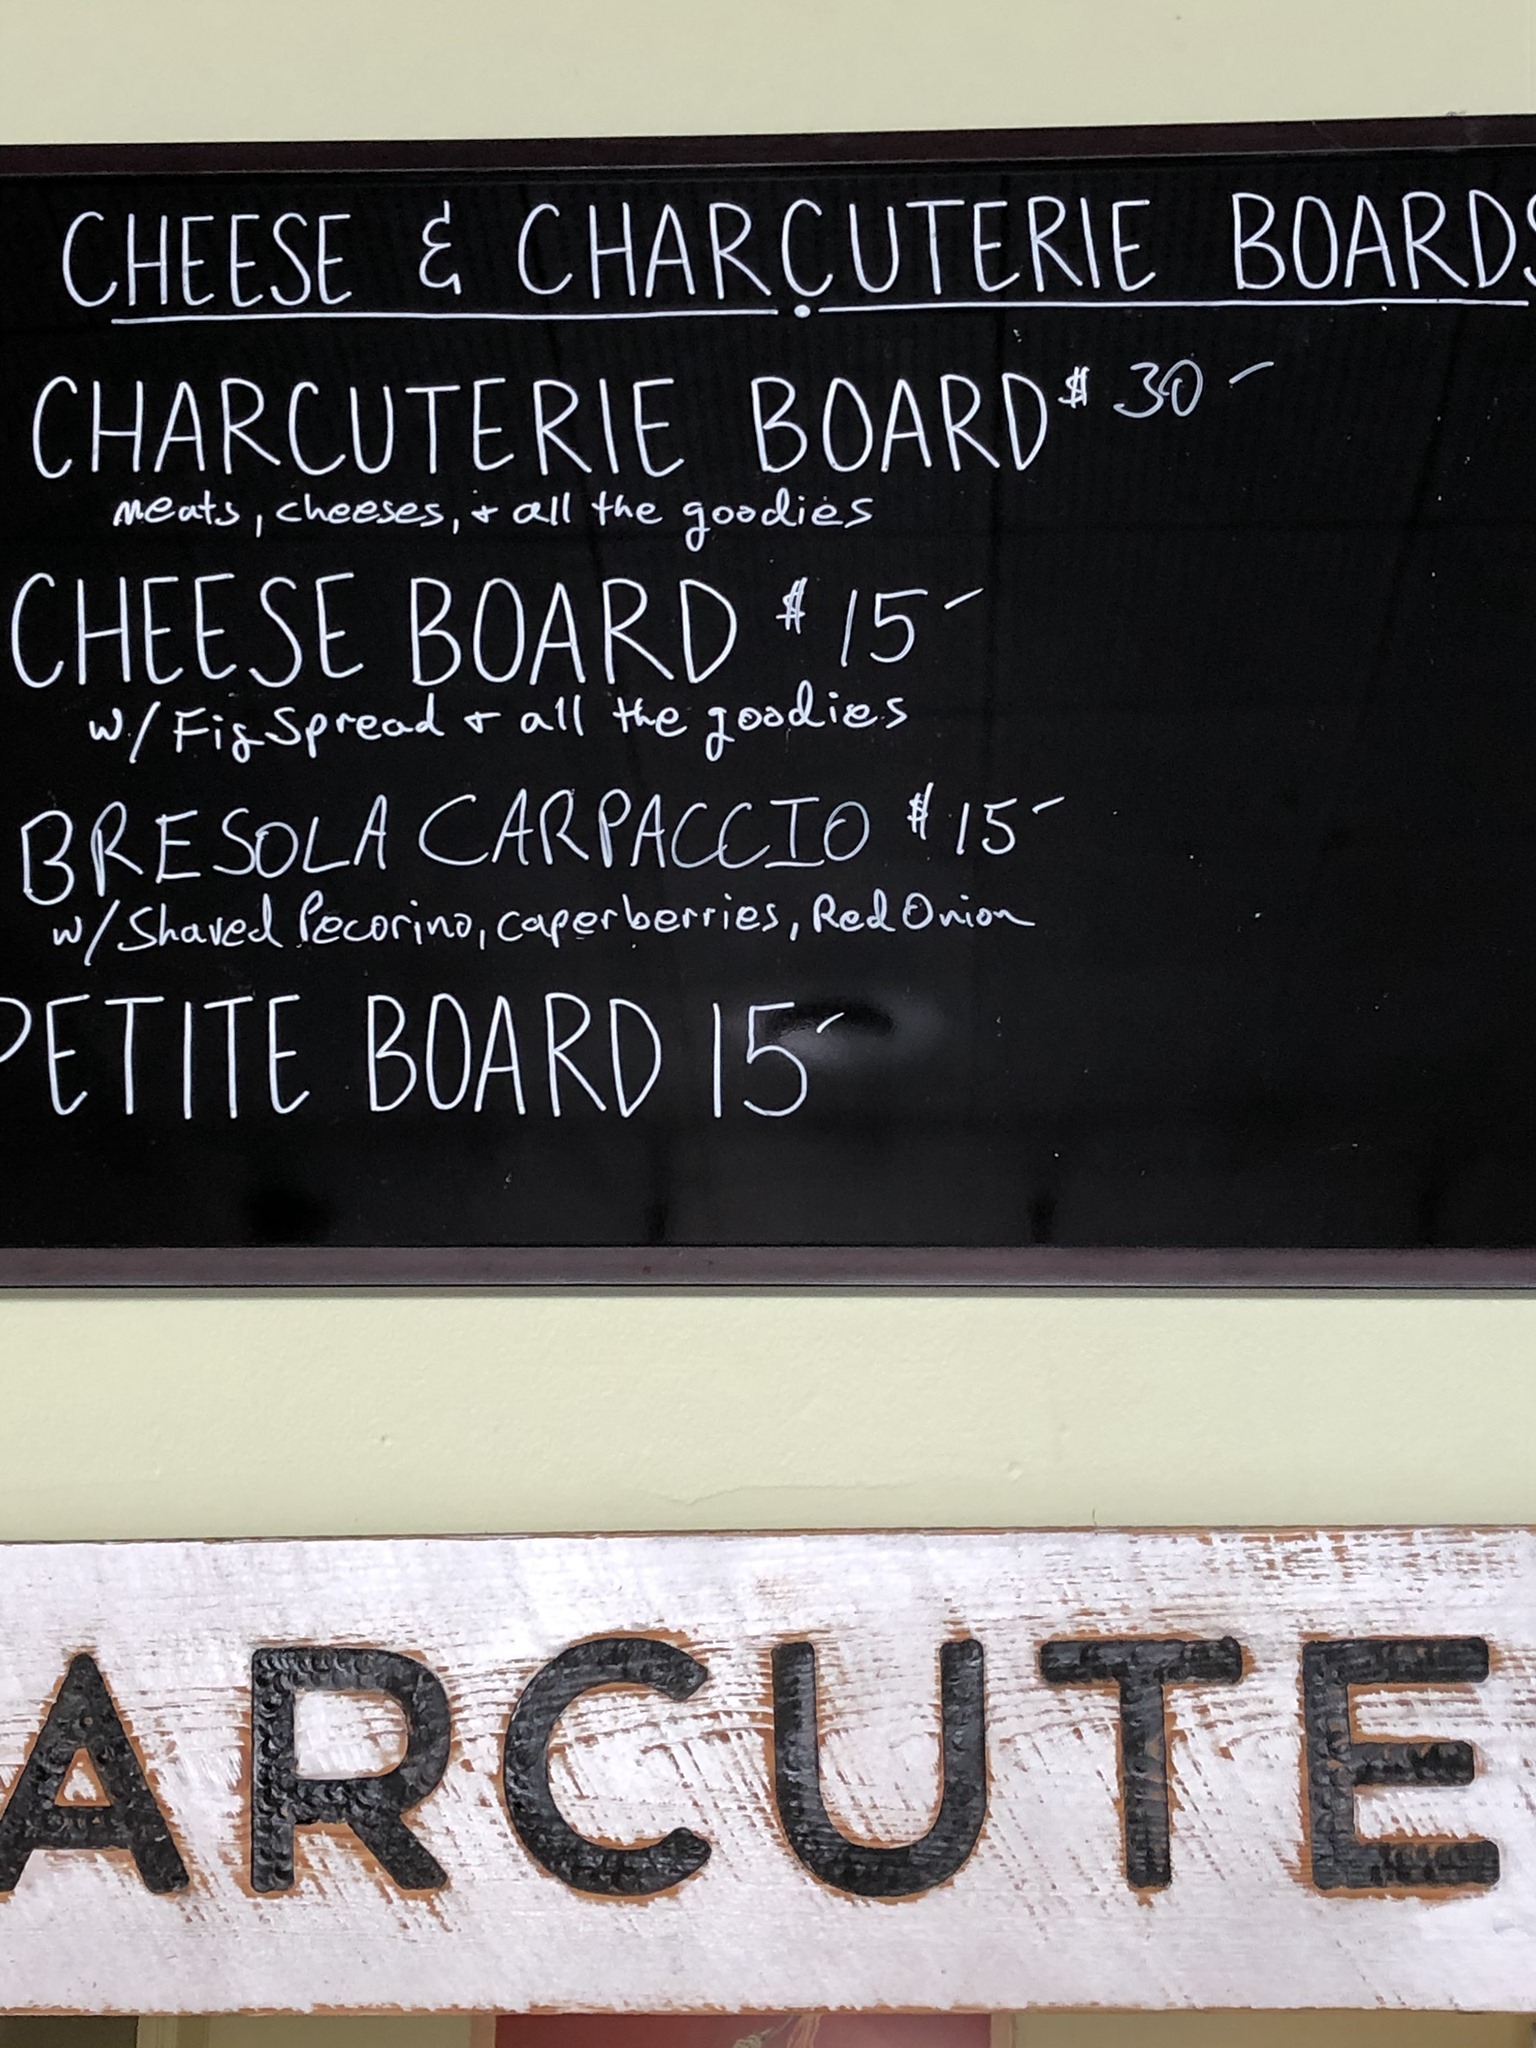 CHEESE & CHARCUTERIE BOARDS
CHARCUTERIE BOARD $ 30-
meats, cheeses, + all the goodies
CHEESE BOARD $ 15-
w/ Fig Spread + all the goodies
BRESOLA CARPACCIO $ 15-
w/ Shaved Pecorino, caperberries, Red Onion
PETITE BOARD 15-
ARCUTE